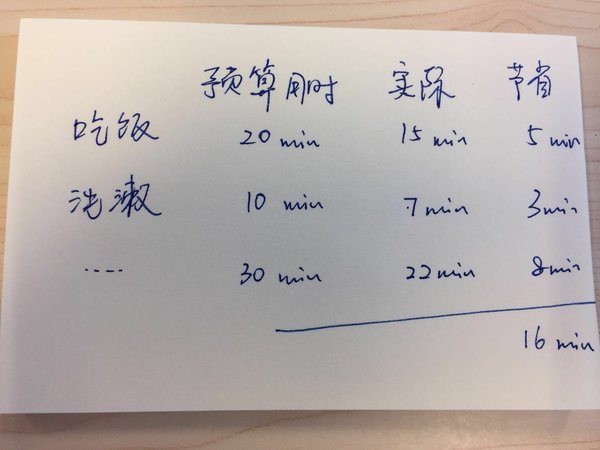 预算用时 实际 节省
吃饭 20 min 15 min 5 min
洗漱 10 min 7 min 3 min
.... 30 min 22 min 8 min
16 min